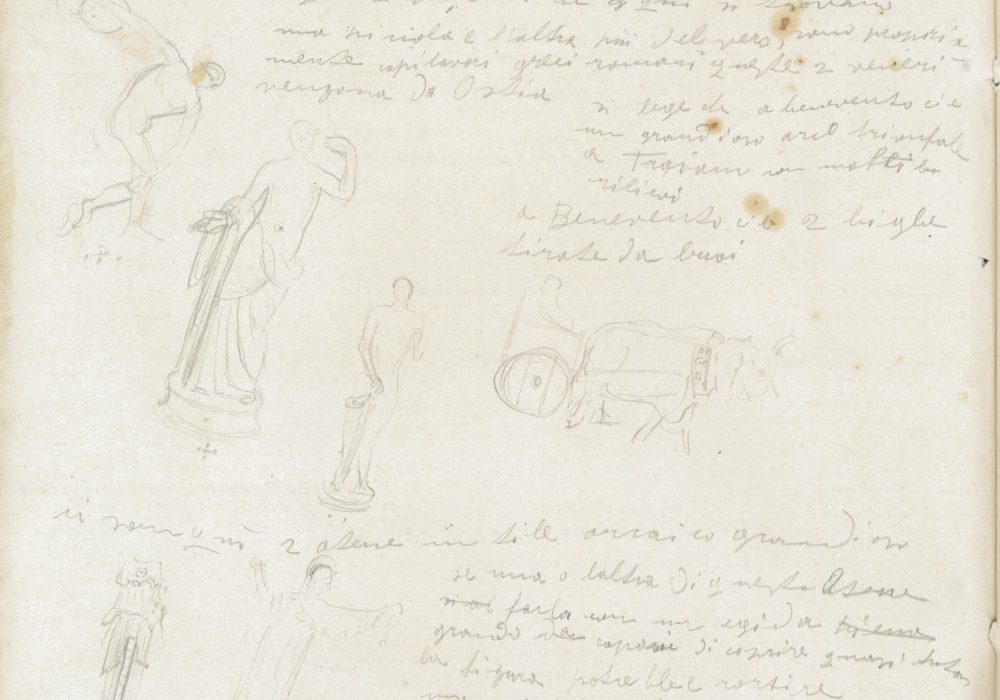 qui si trovano
una piccola e l'altra più del vero, sono propria
mente capilavori greci romani queste 2 veneri
vengono da Ostia
si legge che a benevento c'è
un grandioso arco trionfale
a Trajano con molti ba
rilievi
a Benevento c'è 2 bighe
tirate da buoi
vi sono qui 2 atene in stile arcaico grandioso
se una o l'altra di queste Atene
farla con un egida
grande da capace di coprire quasi tutta
la figura potrebbe sortire